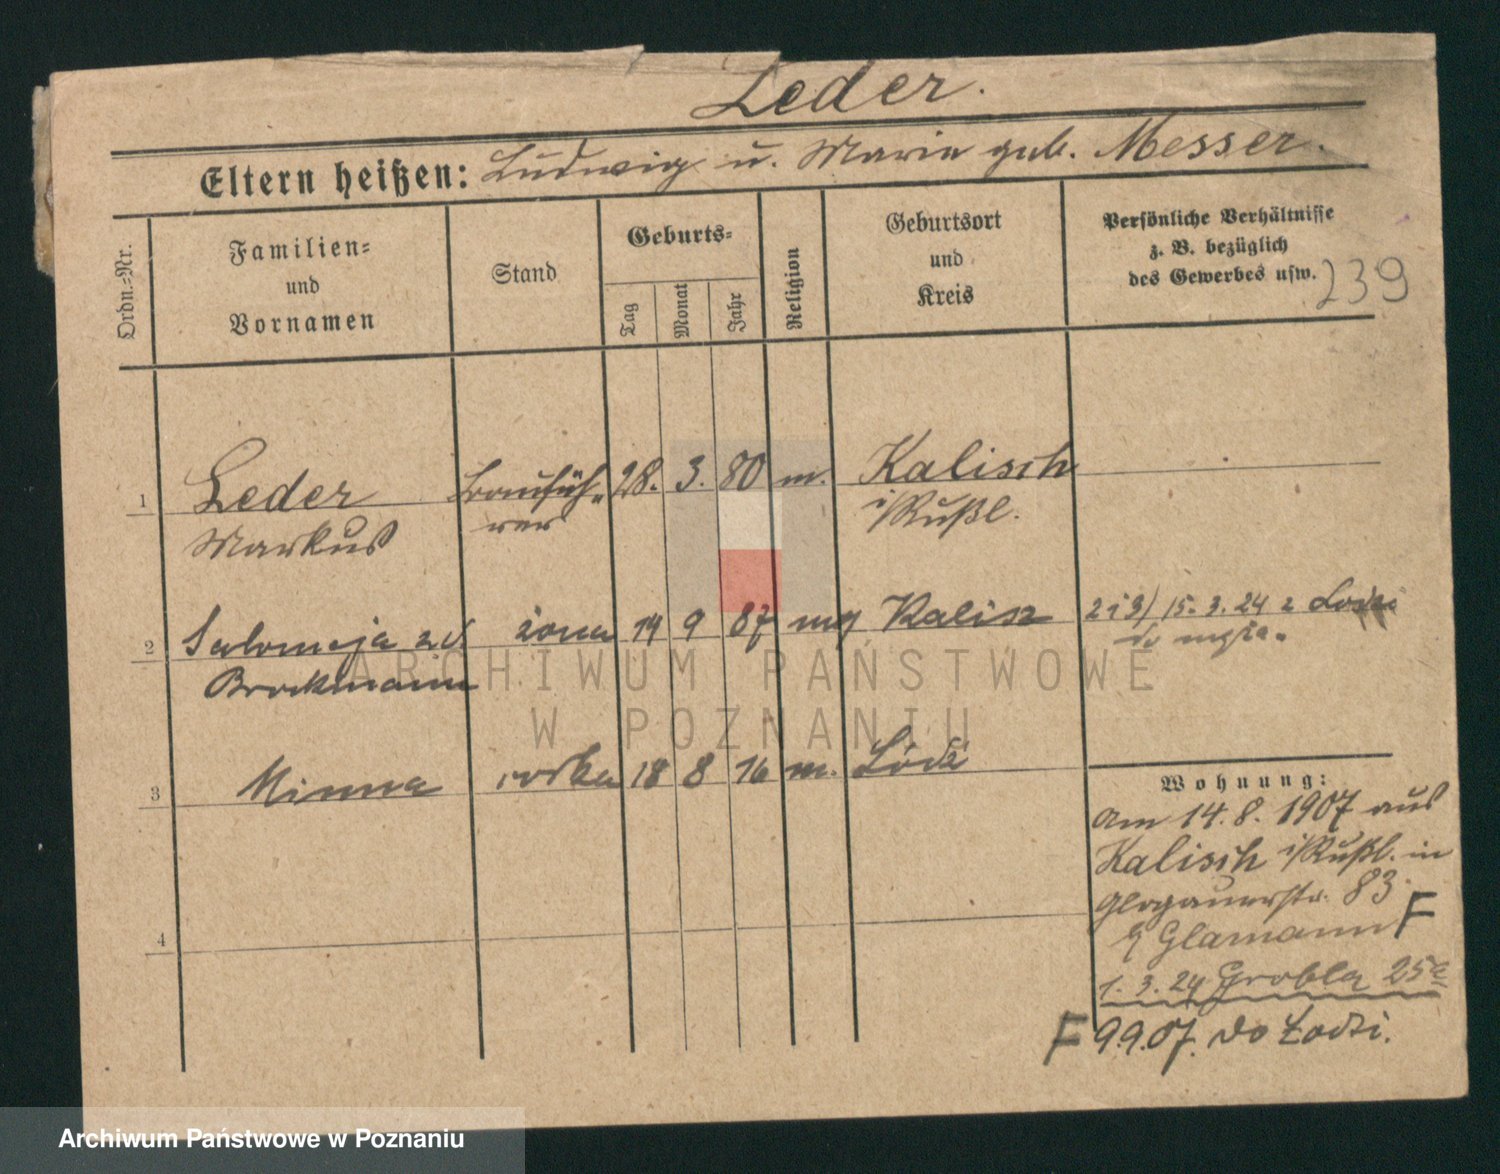 Leder.
Eltern heißen: Ludwig u. Marie geb. Messer.
Ordn.-Nr.
Familien-
und
Vornamen
Stand
Geburts-
Tag
Monat
Jahr
Religion
Geburtsort
und
Kreis
Persönliche Verhältnisse
z. B. bezüglich
des Gewerbes usw.
239
1 Leder Baufüh- 28. 3. 80 m. Kalisch
Markus rer i/Rußl.
2 Salomeja z d. żona 14 9 87 mg Kalisz 2 i 3/ 15. 3. 24 z Łodzi
Brockmann do męża.
3 Minna córka 18 8 16 m. Łódź
4
Wohnung:
Am 14. 8. 1907 aus
Kalisch i/Rußl. in
Glogauerstr. 83
b/ Glamann F
1. 3. 24 Grobla 25a
F 9.9.07. do Łodzi.
ARCHIWUM PAŃSTWOWE
W POZNANIU
Archiwum Państwowe w Poznaniu